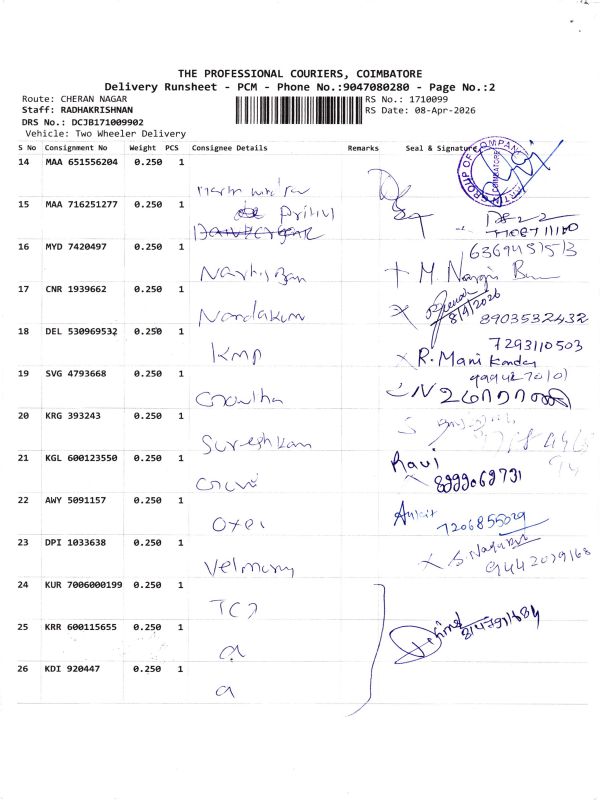 THE PROFESSIONAL COURIERS, COIMBATORE
Delivery Runsheet - PCM - Phone No.:9047080280 - Page No.:2
Route: CHERAN NAGAR
RS No.: 1710099
Staff: RADHAKRISHNAN
RS Date: 08-Apr-2026
DRS No.: DCJB171009902
Vehicle: Two Wheeler Delivery
S No Consignment No Weight PCS Consignee Details Remarks Seal & Signature
14 MAA 651556204 0.250 1
GROUP OF COMPAN
COIMBATORE
15 MAA 716251277 0.250 1
Prithvi
16 MYD 7420497 0.250 1
6369451513
M.
17 CNR 1939662 0.250 1
Nandakum
8/4/2026
8903532432
18 DEL 530969532 0.250 1
Kmp
7293110503
R. Mani Kandan
19 SVG 4793668 0.250 1
Gowtha
20 KRG 393243 0.250 1
Sureshkam
21 KGL 600123550 0.250 1
Ravi
8999069731
22 AWY 5091157 0.250 1
Ankit
7206855029
23 DPI 1033638 0.250 1
Velmany
S. Nagaraj
9442029168
24 KUR 7006000199 0.250 1
25 KRR 600115655 0.250 1
a
26 KDI 920447 0.250 1
a